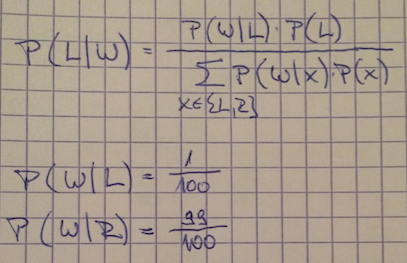 P(L|W) = P(W|L)·P(L) / Σ x∈{L,R} P(W|x)·P(x)
P(W|L) = 1/100
P(W|R) = 99/100